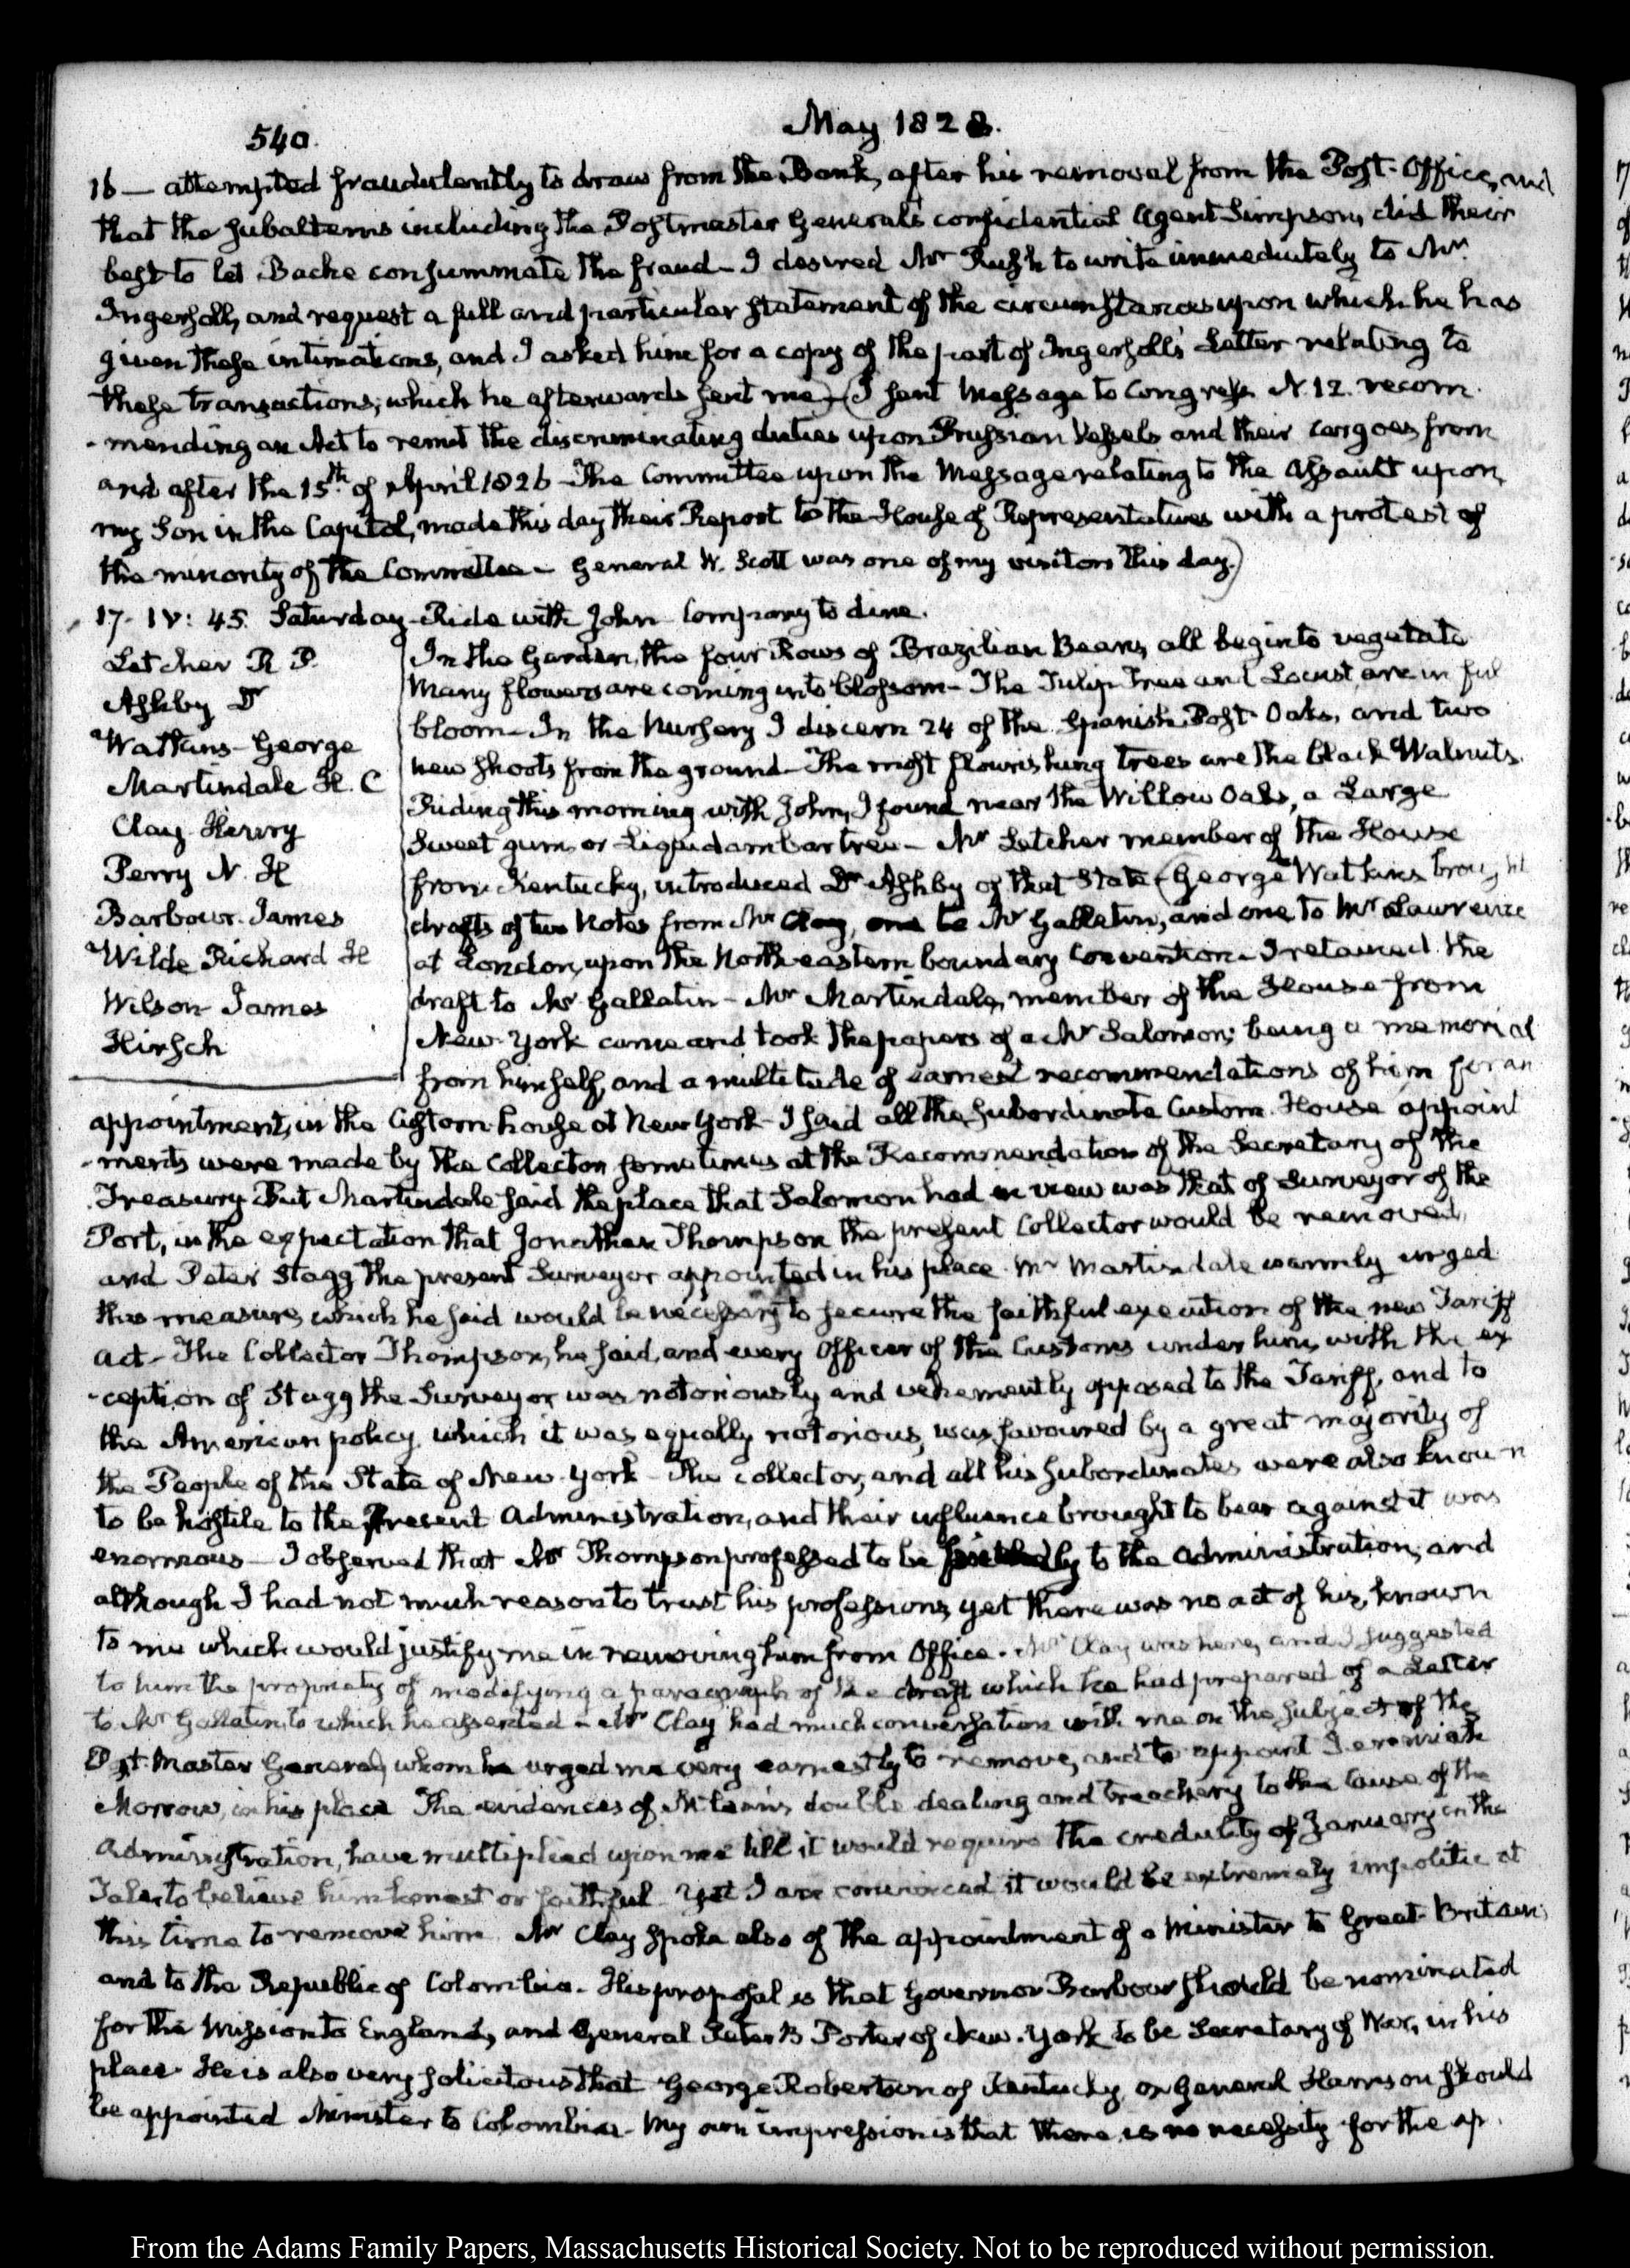 540.
May 1828.
16 — attempted fraudulently to draw from the Bank, after his removal from the Post-Office, and
that the subalterns including the Postmaster General's confidential Agent Simpson, did their
best to let Bache consummate the fraud — I desired Mr Rush to write immediately to Mr
Ingersoll, and request a full and particular statement of the circumstances upon which he has
given these intimations, and I asked him for a copy of the part of Ingersoll's Letter relating to
these transactions; which he afterwards sent me — (I sent Message to Congress N. 12. recom-
-mending an Act to remit the discriminating duties upon Prussian Vessels and their cargoes from
and after the 15th of April 1826 — The Committee upon the Message relating to the assault upon
my Son in the Capitol, made this day their Report to the House of Representatives with a protest of
the minority of the Committee — General W. Scott was one of my visitors this day.)
17. IV: 45. Saturday — Ride with John — Company to dine.
Letcher R P.
Ashby Dr
Watkins — George
Martindale H. C
Clay Henry
Perry N. H
Barbour. James
Wilde Richard H
Wilson James
Hirsch
In the Garden, the four Rows of Brazilian Beans, all begin to vegetate
Many flowers are coming into blossom — The Tulip Tree and Locust, are in full
bloom — In the Nursery I discern 24 of the Spanish Post-Oaks, and two
new shoots from the ground — The most flourishing trees are the black Walnuts.
Riding this morning with John, I found near the Willow Oaks, a Large
Sweet gum, or Liquidambar tree — Mr Letcher member of the House
from Kentucky, introduced Dr Ashby of that State (George Watkins brought
drafts of two Notes from Mr Clay, one to Mr Gallatin, and one to Mr Lawrence
at London, upon the North eastern boundary Convention — I retained the
draft to Mr Gallatin — Mr Martindale, member of the House from
New-York came and took the papers of a Mr Salomon; being a memorial
from himself, and a multitude of earnest recommendations of him for an
appointment, in the Custom-house at New York — I said all the subordinate Custom House appoint
-ments were made by the Collector sometimes at the Recommendation of the Secretary of the
Treasury. But Martindale said the place that Salomon had in view was that of Surveyor of the
Port, in the expectation that Jonathan Thompson the present Collector would be removed,
and Peter Stagg the present Surveyor appointed in his place. Mr Martindale warmly urged
this measure, which he said would be necessary to secure the faithful execution of the new Tariff
Act — The Collector Thompson, he said, and every Officer of the Customs under him, with the ex
-ception of Stagg the Surveyor was notoriously and vehemently opposed to the Tariff, and to
the American policy, which it was equally notorious, was favoured by a great majority of
the People of the State of New-York — The collector, and all his subordinates were also known
to be hostile to the Present Administration, and their influence brought to bear against it was
enormous — I observed that Mr Thompson professed to be friendly to the Administration, and
although I had not much reason to trust his professions, yet there was no act of his, known
to me which would justify me in removing him from Office. Mr Clay was here, and I suggested
to him the propriety of modifying a paragraph of the draft which he had prepared of a Letter
to Mr Gallatin, to which he assented — Mr Clay had much conversation with me on the subject of the
Post-Master General, whom he urged me very earnestly to remove, and to appoint Jeremiah
Morrow, in his place. The evidences of McLean's double dealing and treachery to the cause of the
Administration, have multiplied upon me till it would require the credulity of January in the
Tale, to believe him honest or faithful — Yet I am convinced it would be extremely impolitic at
this time to remove him. Mr Clay spoke also of the appointment of a Minister to Great-Britain,
and to the Republic of Colombia. His proposal is that Governor Barbour should be nominated
for the Mission to England, and General Peter B Porter of New-York to be Secretary of War, in his
place. He is also very solicitous that George Robertson of Kentucky or General Harrison should
be appointed Minister to Colombia. My own impression is that there is no necessity for the ap.
From the Adams Family Papers, Massachusetts Historical Society. Not to be reproduced without permission.